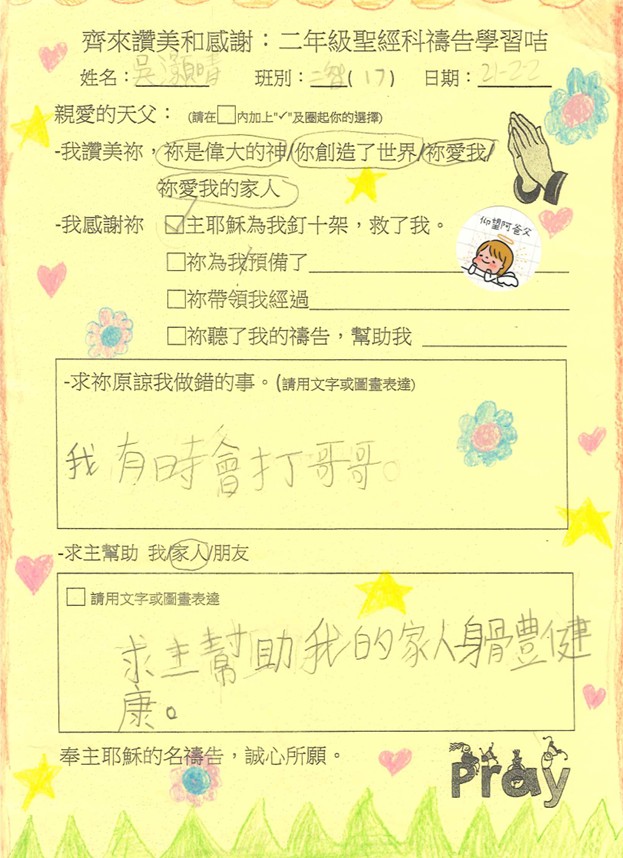 齊來讚美和感謝：二年級聖經科禱告學習咭
姓名：吳灝晴 班別：二智(17) 日期：21-22
親愛的天父： (請在□內加上"✓"及圈起你的選擇)
-我讚美祢，祢是偉大的神/你創造了世界/祢愛我/
祢愛我的家人
-我感謝祢 ☑主耶穌為我釘十架，救了我。
仰望阿爸父
□祢為我預備了
□祢帶領我經過
□祢聽了我的禱告，幫助我
-求祢原諒我做錯的事。(請用文字或圖畫表達)
我有時會打哥哥。
-求主幫助 我/家人/朋友
□ 請用文字或圖畫表達
求主幫助我的家人身體健
康。
奉主耶穌的名禱告，誠心所願。
Pray